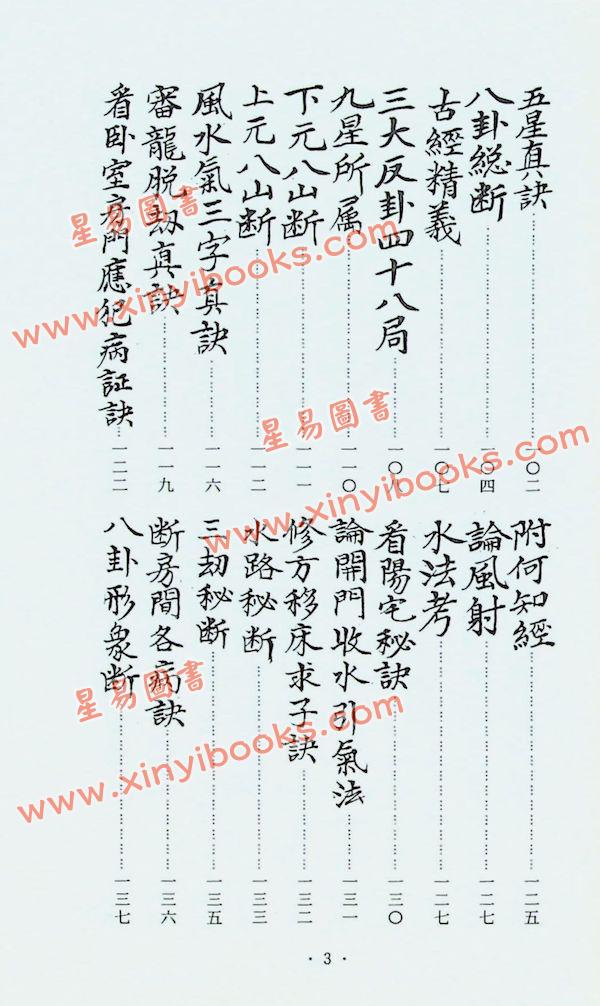 五星真訣……一〇二
八卦総断……一〇四
古經精義……一〇七
三大反卦四十八局……一〇八
九星所属……一一〇
下元八山断……一一一
上元八山断……一一二
風水氣三字真訣……一一六
審龍脱劫真訣……一一九
看卧室房門應犯病証訣……一二二
附何知經……一二五
論風射……一二七
水法考……一二七
看陽宅秘訣……一三〇
論開門收水引氣法……一三一
修方移床求子訣……一三二
水路秘断……一三三
三劫秘断……一三五
断房間各病訣……一三六
八卦形象断……一三七
·3·
星易圖書
www.xinyibooks.com
星易圖書
www.xinyibooks.com
星易圖書
www.xinyibooks.com